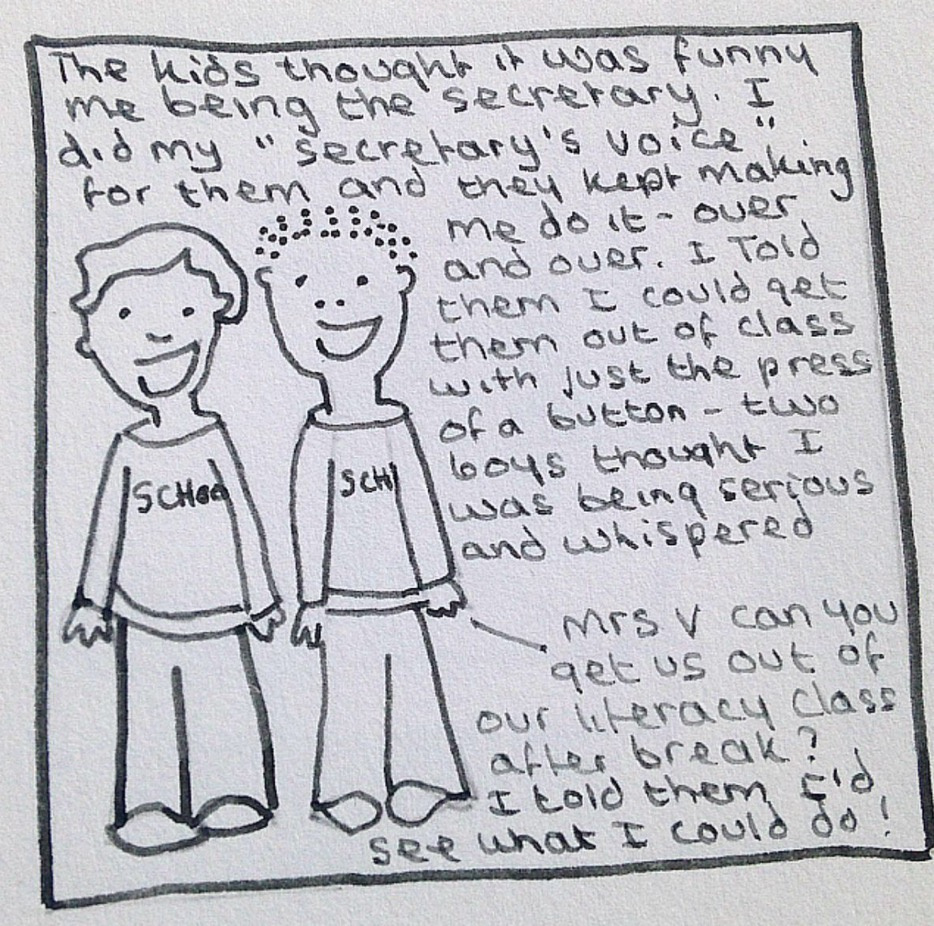 The kids thought it was funny
me being the secretary. I
did my "secretary's voice"
for them and they kept making
me do it - over
and over. I Told
them I could get
them out of class
with just the press
of a button - two
boys thought I
was being serious
and whispered
SCHOO
SCH
Mrs V can you
get us out of
our literacy class
after break?
I told them I'd
see what I could do!